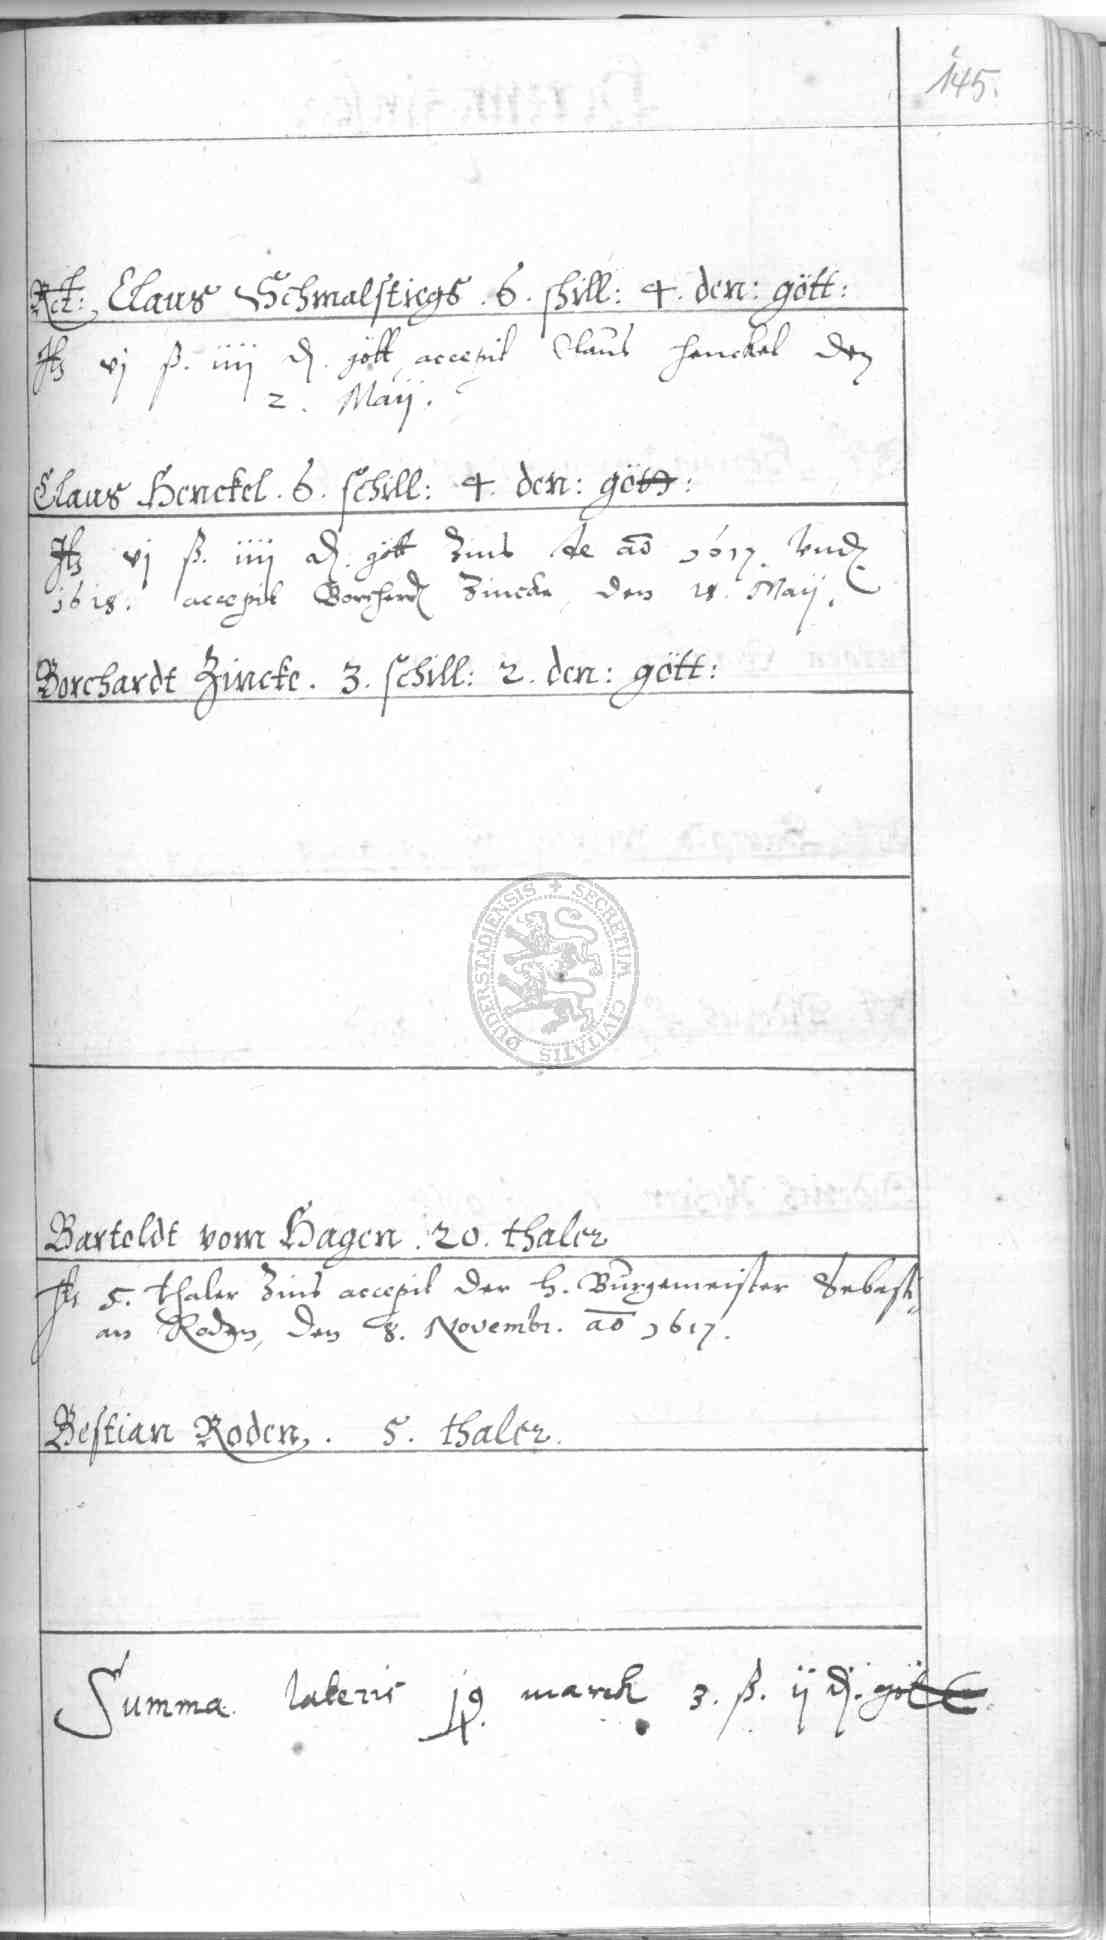 145.
Rct: Claus Schmalstiegs . 6 . shill: 4 . den: gött:
It vj ß. iiij d. gött accepit Claus Henckel den
2. Maij.
Claus Henckel . 6 . schill: 4 . den: gött:
It vj ß. iiij d. gött Zins de ao 1617. vnd
1618. accepit Borcherdt Zincke, den 18. Maij.
Borchardt Zincke . 3 . schill: 2 . den: gött:
DUDERSTADIENSIS + SECRETUM CIVITATIS
Bartoldt vom Hagen . 20 . thaler
It 5. thaler Zins accepit der h. Burgemeister Sebasti
an Roden, den 8. Novembr. ao 1617.
Bestian Roden, . 5 . thaler.
Summa lateris marck 3. ß. ij d. gött